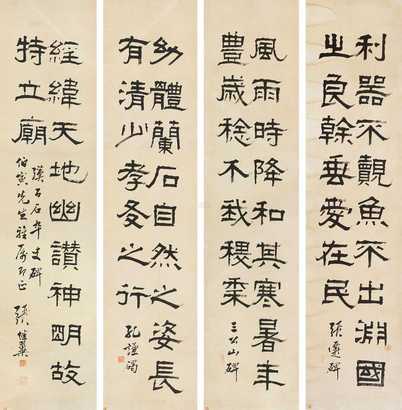 利器不覿魚不出淵國
之良幹垂愛在民
張遷碑
風雨時降和其寒暑年
豊歲稔不我稷黍
三公山碑
幼體蘭石自然之姿長
有清少孝友之行
孔謙碣
經緯天地幽讚神明故
特立廟
漢百石卒史碑
伯寅先生雅屬即正